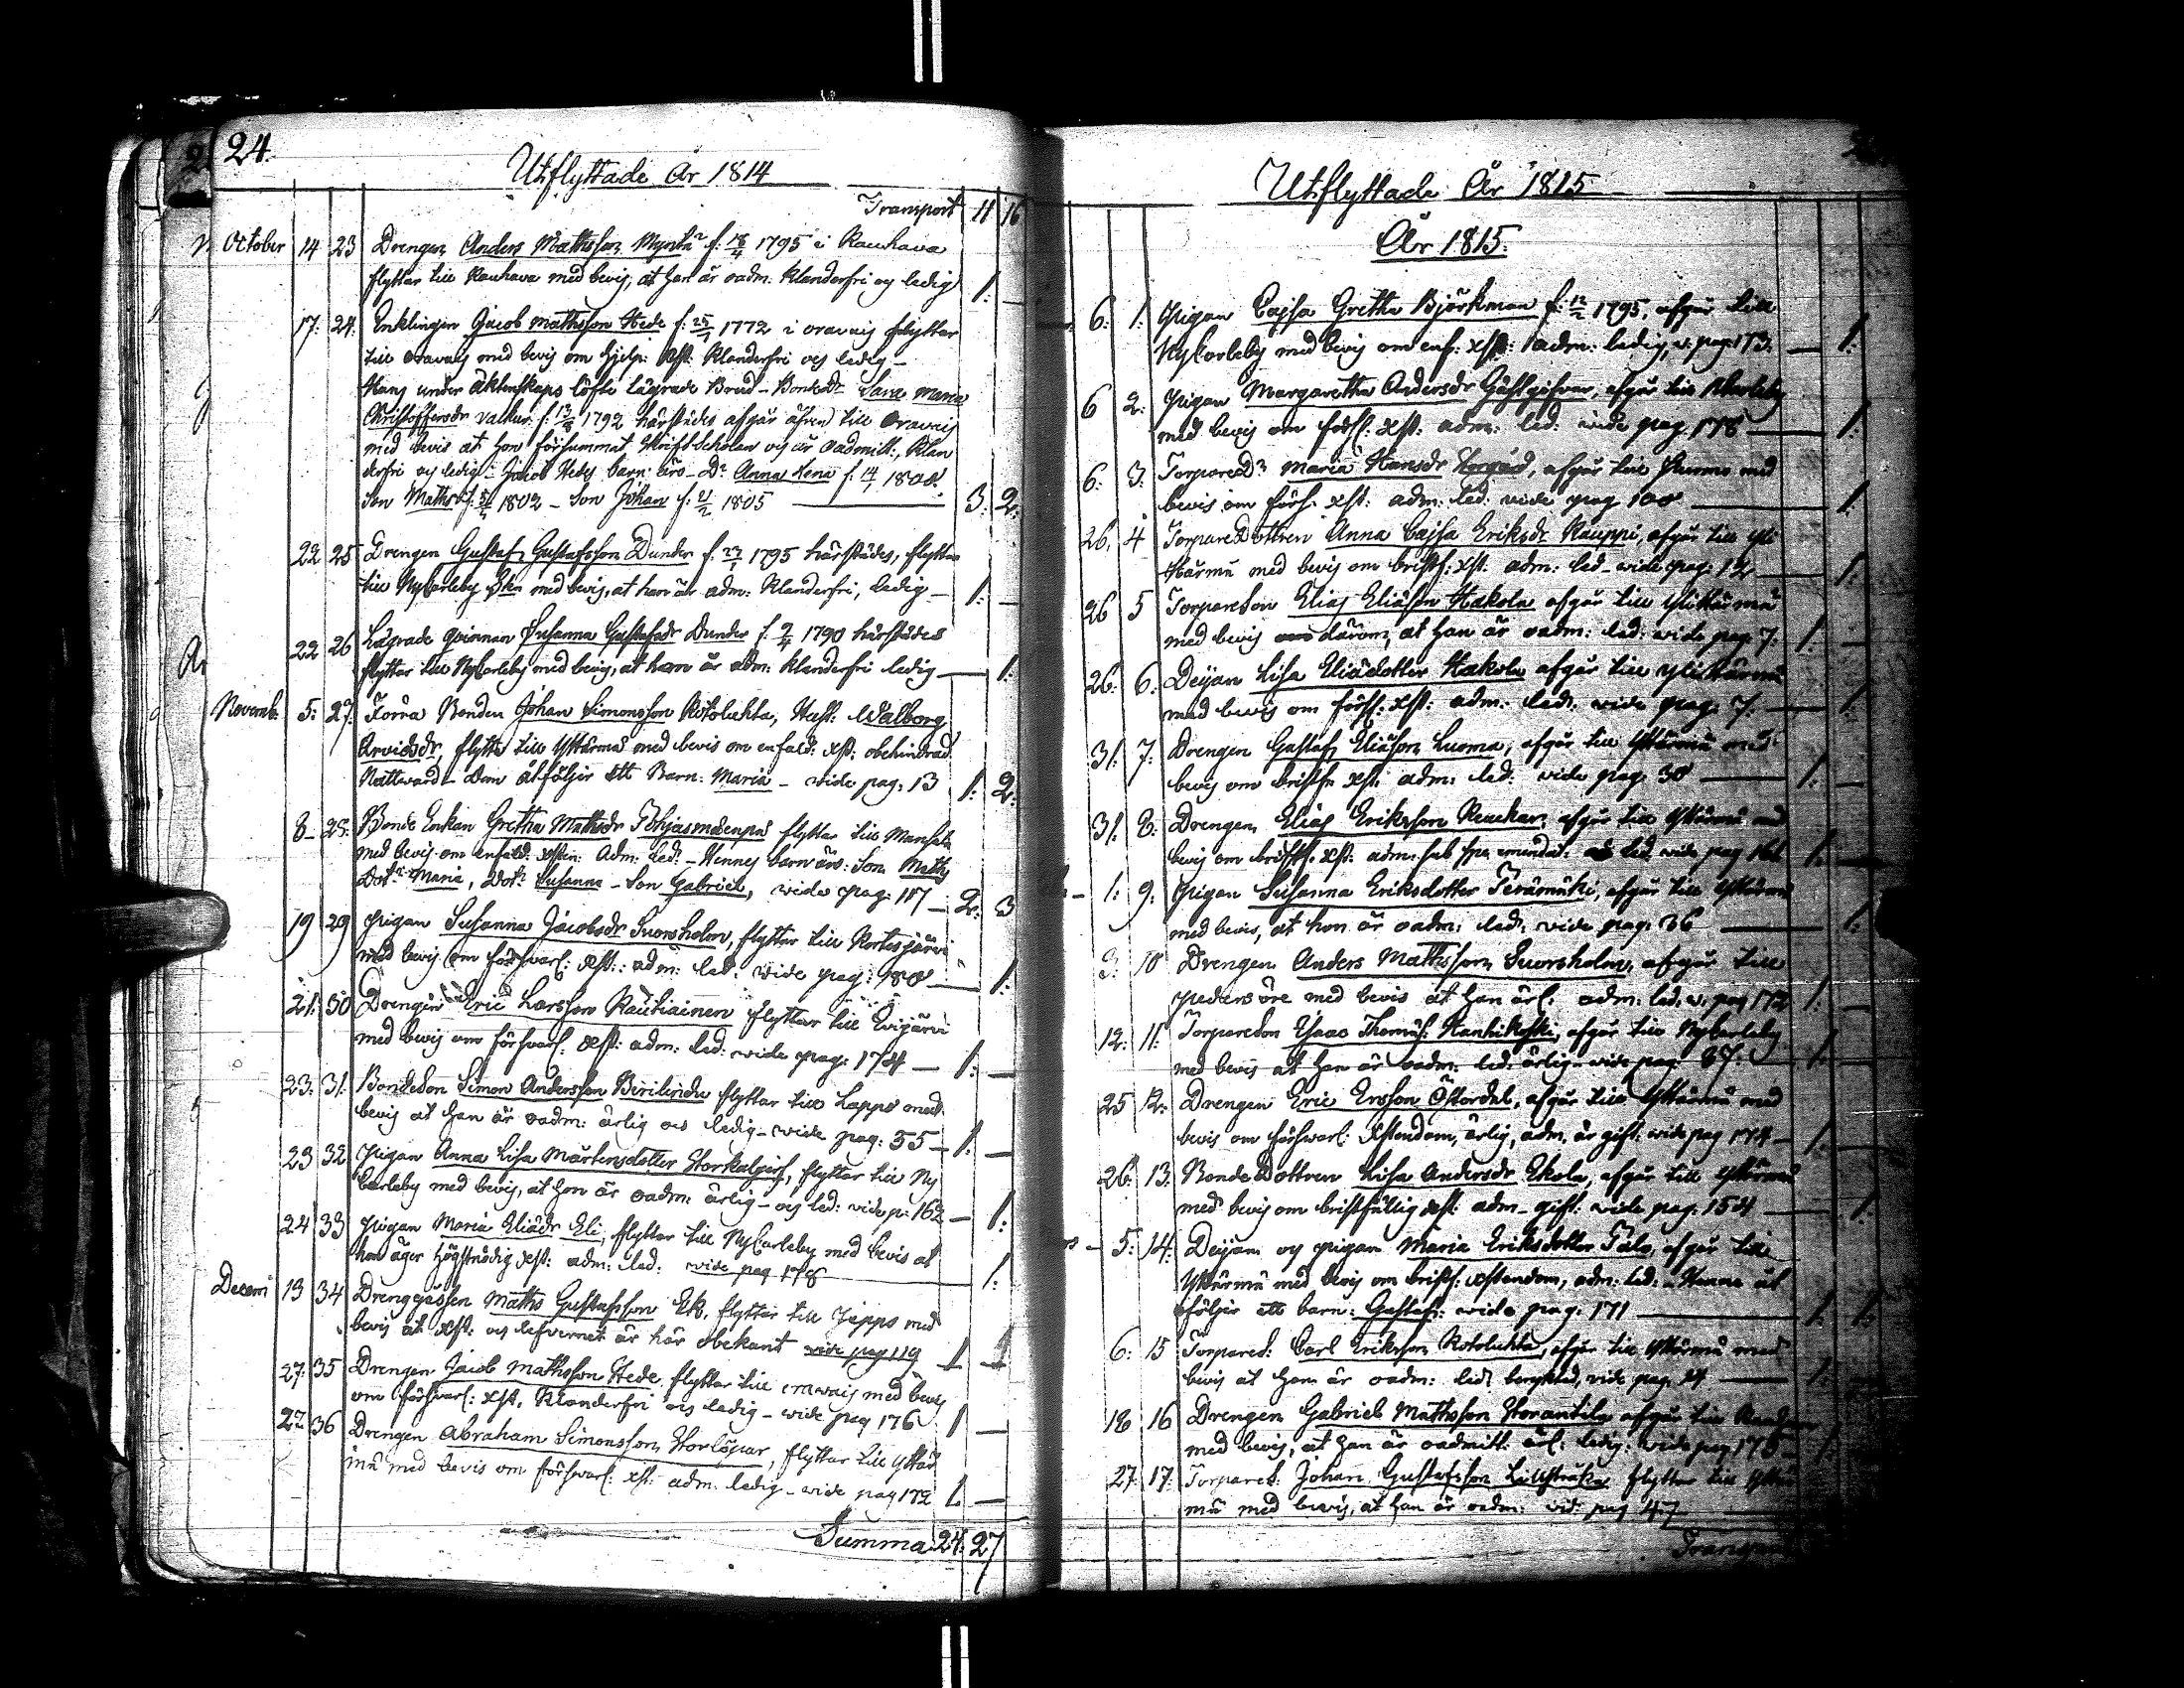 24.
Utflyttade År 1814
Transport 11 16
October 14 23 Drengen Anders Mathsson Mynti f: 18/4 1795 i Kauhava
flyttar till Kauhava med bevis, at han är oadm: klanderfri og ledig 1. —
17. 24. Enklingen Jacob Mathsson Hede f: 25/7 1772 i oravais flyttar
till oravais med bevis om hjelp: Xst: klanderfri och ledig –
Hans under äktenskaps löfte lägrade Brud – Bondedr Sara Maria
Christoffersdr Valkur f: 13/8 1792 härstädes afgår äfven till oravais
med bevis at hon försummat Skriftscholan och är oadmitt:, klan
derfri och ledig – Jacob Hedes barn: äro – Dr Anna Lena f: 14/1 1808
son Maths f: 1802 – Son Johan f: 21/2 1805 3. 2.
22 25 Drengen Gustaf Gustafsson Dunder f: 1795 härstädes, flyttar
till NyCarleby Skn med bevis, at han är adm: klanderfri, ledig – 1: —
22 26 Lägrade qvinnan Susanna Gustafsdr Dunder f: 9/4 1790 härstädes
flyttar till NyCarleby med bevis, at hon är adm: klanderfri ledig — 1:
Novemb: 5: 27. Förra Bonden Johan Simonsson Kotoluhta, Hust: Walborg
Arvidsdr, flytta till Yttärmä med bevis om enfald: Xst: obehindrad
Nattward – dem åtföljer ett Barn: Maria – wide pag: 13 1: 2:
8 – 28: Bonde Enkan Gretha Mathsdr Pohjasmäenpä flyttar till Mansala
med bevis om enfald: Xsten: Adm: led: – Hennes barn äro: Son Maths
Dotr Maria, Dotr Susanna – Son Gabriel, wide pag: 117 – 2: 3
19 29 Pigan Susanna Jacobsdr Suorsholm, flyttar till Kortesjärvi
med bevis om försvarl: Xst: adm: led: wide pag: 180 — 1:
21: 30 Drengen Eric Larsson Rautiainen flyttar till Evijärvi
med bevis om försvarl: Xst: adm: led: wide pag: 174 — 1: —
23: 31. Bondeson Simon Andersson flyttar till Lappo med
bevis at han är oadm: ärlig och ledig – wide pag: 55 – 1. —
23 32 Pigan Anna Lisa Mårtensdotter Storkalgirs, flyttar till Ny
Carleby med bevis, at hon är oadm: ärlig – och led: wide p: 162 — 1:
24 33 Pigan Maria Eliädr Eli, flyttar till NyCarleby med bevis at
hon äger högstnödig Xst: adm: led: wide pag 178 1:
Decem 13 34 Drenggåssen Maths Gustafsson Ek, flyttar till Jeppo med
bevis at Xst: och lefvernet är här obekant wide pag 119 1 —
27: 35 Drengen Jacob Mathsson Hede flyttar till oravais med bevis
om försvarl: Xst. Klanderfri och ledig – wide pag 176 1 —
27 36 Drengen Abraham Simonsson Storlöpar, flyttar till Yttär
mä med bevis om försvarl: Xst: adm. ledig – wide pag 172 1. —
Summa: 24: 27
Utflyttade År 1815
År 1815.
6: 1: Pigan Cajsa Gretha Björkman f: 12/2 1795, afgår till
NyCarleby med bevis om enf: Xst: adm: ledig, w. pag: 173. — 1:
6 2: Pigan Margaretha Andersdr Gästgifvar, afgår till NCarleby
med bevis om förs: Xst: adm: led: wide pag 178 — 1:
6: 3: TorpareDr Maria Hansdr Storgård, afgår till med
bevis om förs: Xst: adm: led: wide pag 108 1:
26. 4 TorpareDottren Anna Cajsa Eriksdr Kauppi, afgår till Yli
Härmä med bevis om bristf: Xst: adm: led – wide pag: 12 1:
26 5 TorpareSon Elias Eliäson Hakola afgår till YliHärmä
med bevis därom, at han är oadm: led: wide pag. 7: 1: —
26: 6: Deijan Lisa Eliädotter Hakola afgår till YliHärmä
med bevis om förs: Xst: adm: led: wide pag: 7: — 1:
31. 7: Drengen Gustaf Eliäson Luoma, afgår till Yttärmä med
bevis om bristf: Xst: adm: led: wide pag: 30 — 1: —
31. 8: Drengen Elias Eriksson afgår till Yttärmä med
bevis om bristf: Xst: adm: sub spe emendat: led wide pag 161 1: —
1: 9: Pigan Susanna Eriksdotter Terämäki, afgår till Yttärmä
med bevis, at hon är oadm: led: wide pag: 36 — 1:
3: 10 Drengen Anders Mathsson Suorsholm, afgår till
Pedersöre med bevis at han är: adm: led: w: pag 172 1: —
12: 11: TorpareSon Isaac Thomäs: Hanhikoski, afgår till NyCarleby
med bevis at han är oadm: led: ärlig – wide pag 87. — 1:
25 12: Drengen Eric Ersson Österdal, afgår till Yttärmä med
bevis om försvarl: Xstendom, ärlig, adm, är gift: wide pag 174 — 1: —
26: 13. BondeDottren Lisa Andersdr Ekola, afgår till Yttärmä
med bevis om bristfällig Xst: adm – gift: wide pag: 154 — 1:
5: 14: Deijan og Pigan Maria Eriksdotter Talo, afgår till
Yttärmä med bevis om bristf: Xstendom, adm: led: – Henne åt
följer ett barn: Gustaf: wide pag: 171 1: 1:
6: 15 Torpared: Carl Eriksson Kotoluhta, afgår till Yttärmä med
bevis at han är oadm: led: wide pag. 14 — 1: —
18 16 Drengen Gabriel Mathsson Storantila afgår till
med bevis, at han är oadmitt: ärl: ledig: wide pag. 175 – 1:
27: 17: Torpares: Johan Gustafsson flyttar till Yttär
mä med bevis, at han är oadm: wid: pag 47
Transport